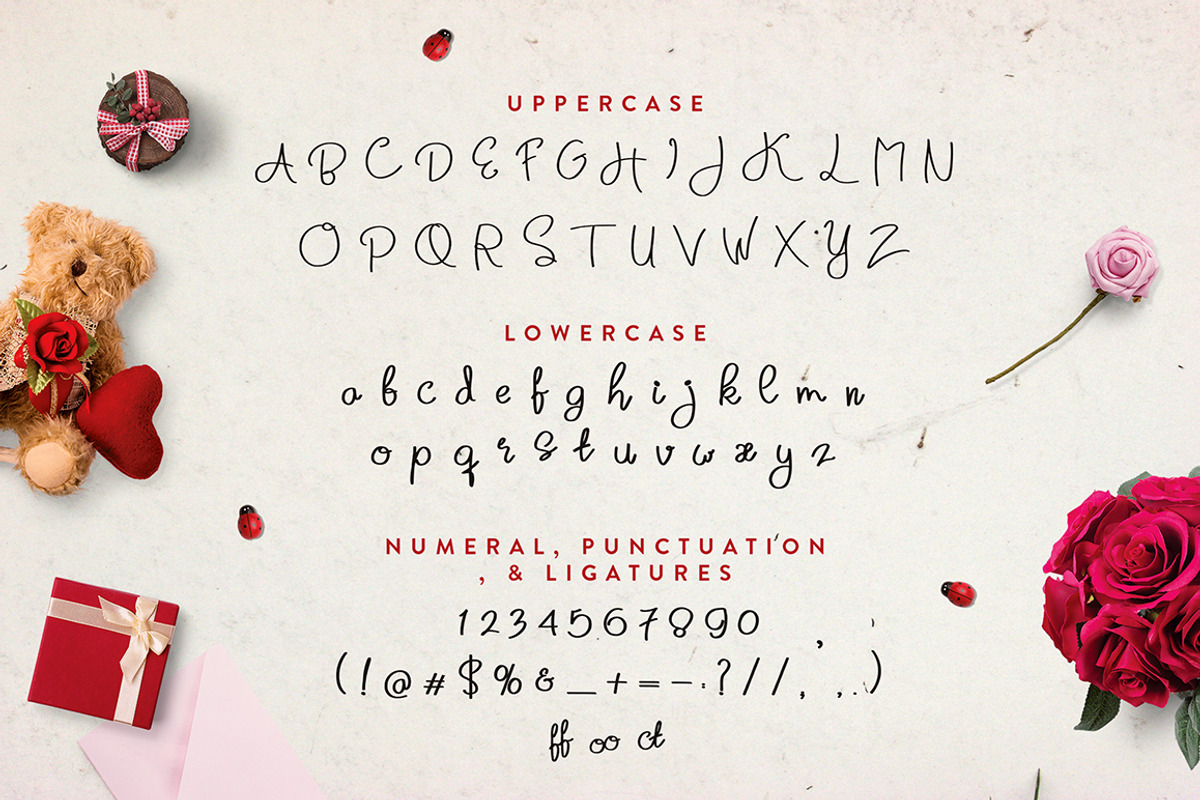 UPPERCASE
A B C D E F G H I J K L M N
O P Q R S T U V W X Y Z
LOWERCASE
a b c d e f g h i j k l m n
o p q r s t u v w x y z
NUMERAL, PUNCTUATION
, & LIGATURES
1 2 3 4 5 6 7 8 9 0 , '
( ! @ # $ % & _ + = - . ? / / , , . . )
ff oo ct